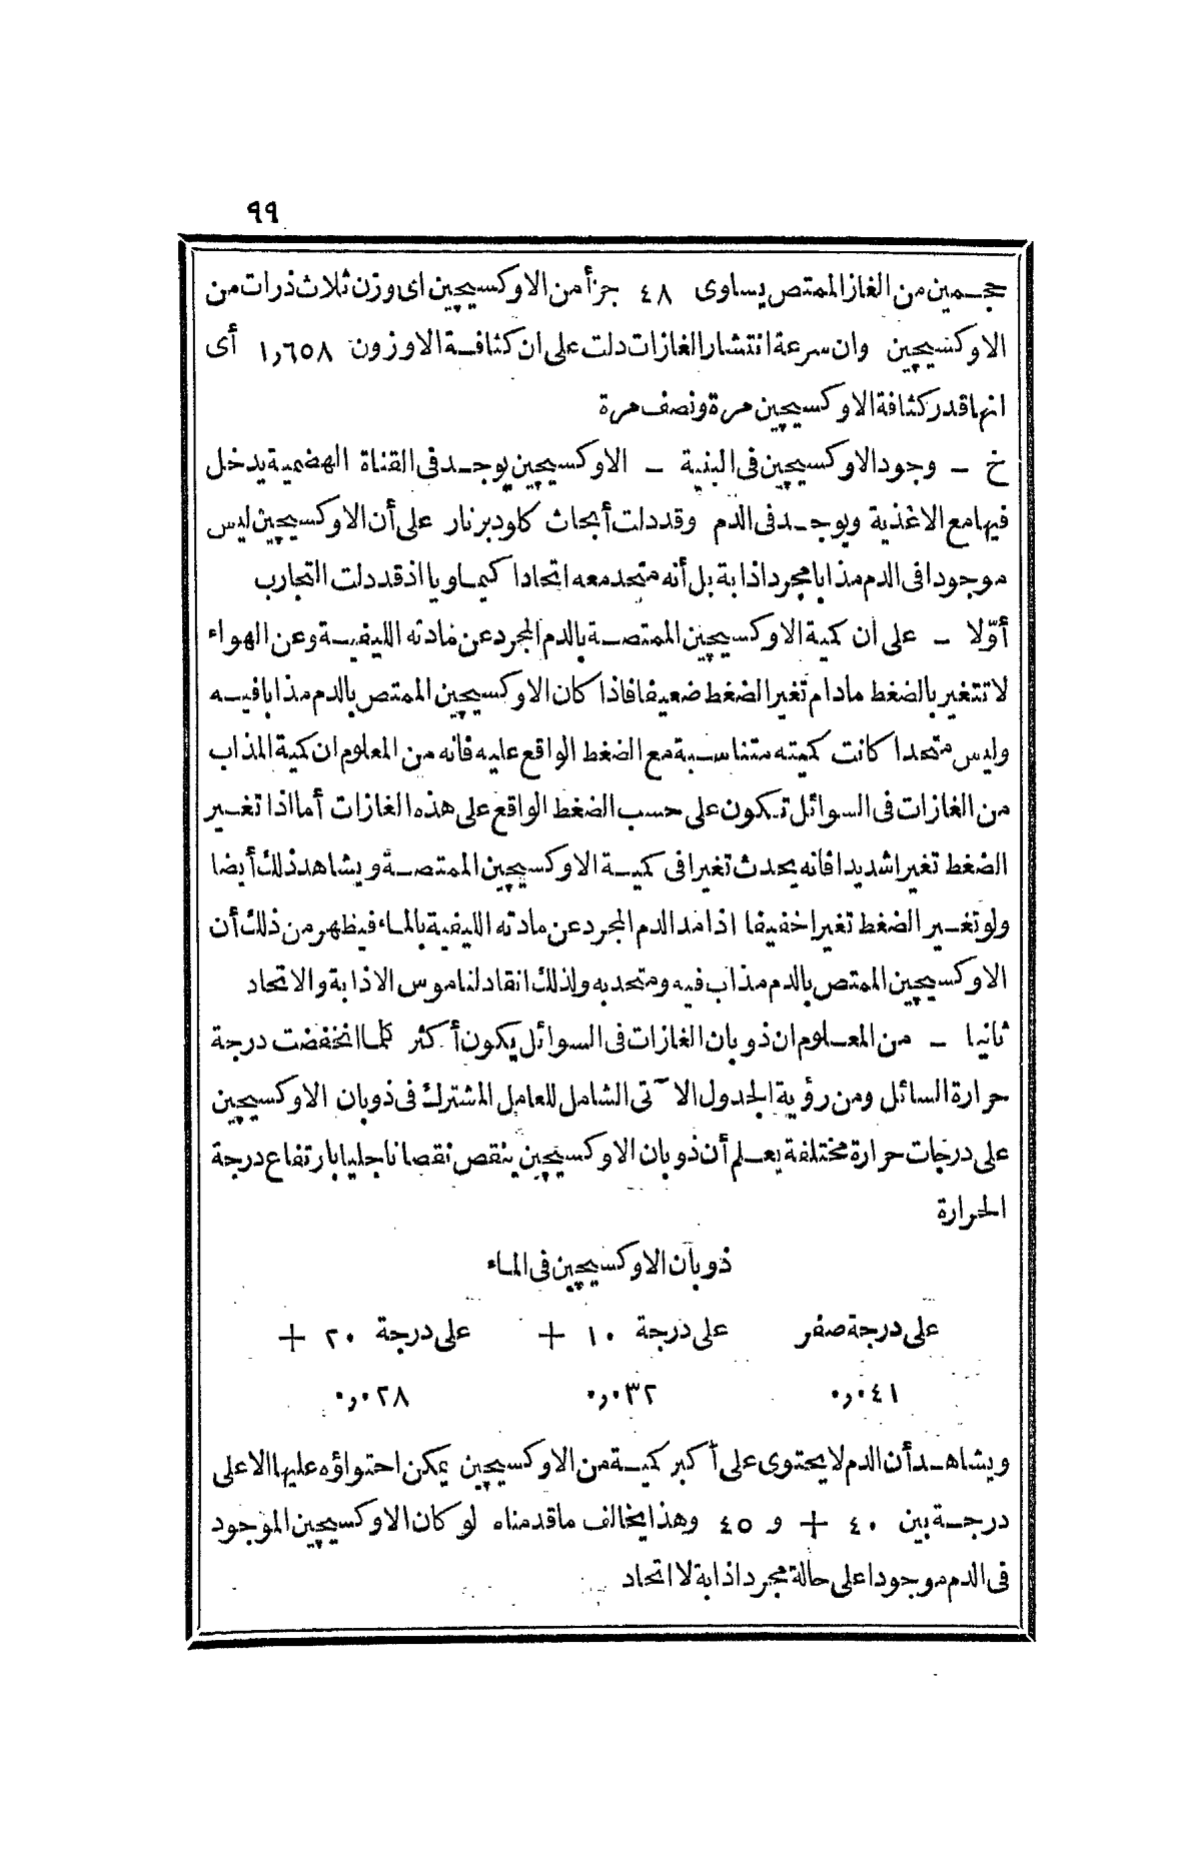 ٩٩
حجمين من الغاز الممتص يساوى ٤٨ جزأ من الاوكسيچين اى وزن ثلاث ذرات من
الاوكسيچين وان سرعة انتشار الغازات دلت على ان كثافة الاوزون ١,٦٥٨ أى
انها قدر كثافة الاوكسيچين مرة ونصف مرة
خ – وجود الاوكسيچين فى البنية – الاوكسيچين يوجد فى القناة الهضمية يدخل
فيها مع الاغذية ويوجد فى الدم وقد دلت أبحاث كلود برنار على أن الاوكسيچين ليس
موجودا فى الدم مذابا مجرد اذابة بل أنه متحد معه اتحادا كيماويا اذ قد دلت التجارب
أوّلا – على ان كمية الاوكسيچين الممتصة بالدم المجرد عن مادته الليفية وعن الهواء
لا تتغير بالضغط مادام تغير الضغط ضعيفا فاذا كان الاوكسيچين الممتص بالدم مذابا فيه
وليس متحدا كانت كميته متناسبة مع الضغط الواقع عليه فانه من المعلوم ان كمية المذاب
من الغازات فى السوائل تكون على حسب الضغط الواقع على هذه الغازات أما اذا تغير
الضغط تغيرا شديدا فانه يحدث تغيرا فى كمية الاوكسيچين الممتصة ويشاهد ذلك أيضا
ولو تغير الضغط تغيرا خفيفا اذا مد الدم المجرد عن مادته الليفية بالماء فيظهر من ذلك أن
الاوكسيچين الممتص بالدم مذاب فيه ومتحد به ولذلك انقاد لناموس الاذابة والاتحاد
ثانيا – من المعلوم ان ذوبان الغازات فى السوائل يكون أكثر كلما انخفضت درجة
حرارة السائل ومن رؤية الجدول الآتى الشامل للعامل المشترك فى ذوبان الاوكسيچين
على درجات حرارة مختلفة يعلم أن ذوبان الاوكسيچين ينقص نقصانا جليا بارتفاع درجة
الحرارة
ذوبان الاوكسيچين فى الماء
على درجة صفر على درجة ١٠ + على درجة ٢٠ +
٠,٠٤١ ٠,٠٣٢ ٠,٠٢٨
ويشاهد أن الدم لا يحتوى على أكبر كمية من الاوكسيچين يمكن احتواؤه عليها الا على
درجة بين ٤٠ + و ٤٥ وهذا يخالف ما قدمناه لو كان الاوكسيچين الموجود
فى الدم موجودا على حالة مجرد اذابة لا اتحاد